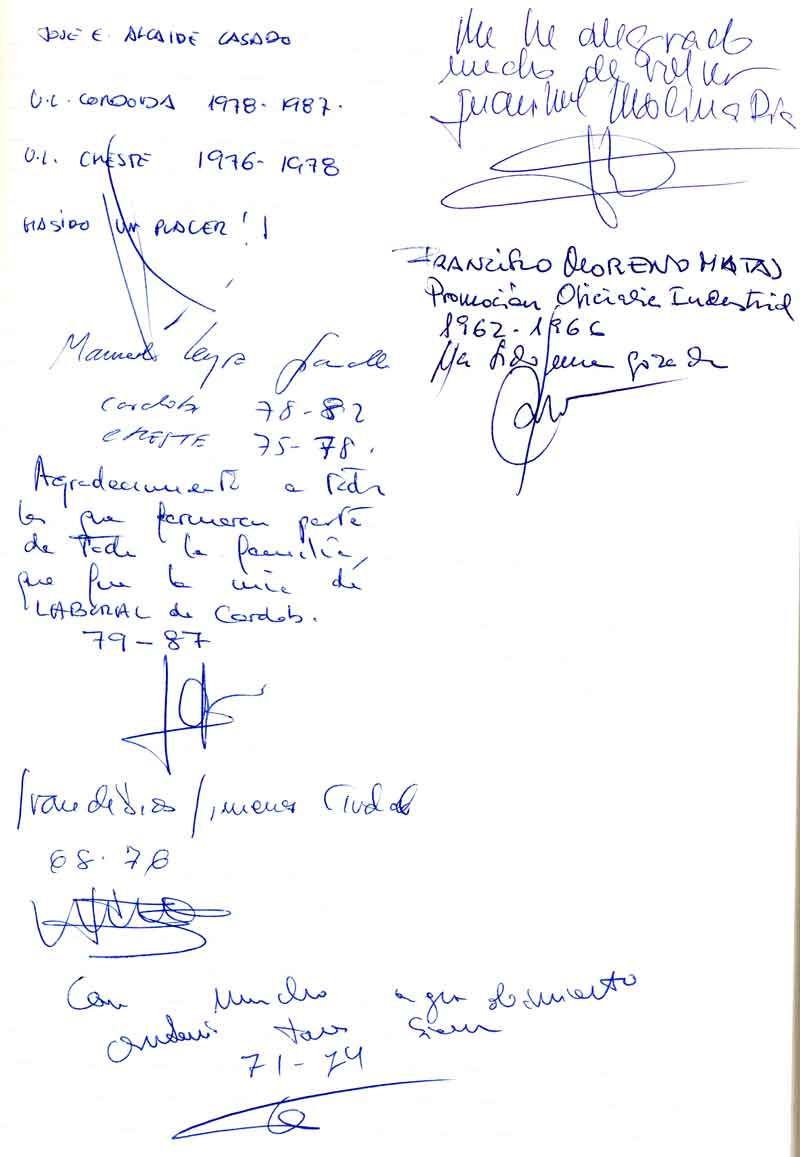 JOSE E. ALCAIDE CASADO
U.L. CORDOBA 1978-1987.
U.L. CHESTE 1976-1978
HA SIDO UN PLACER!!
Manuel
Cordoba 78-82
CHESTE 75-78.
Agradecimiento a todos
los que formaron parte
de toda la familia,
que fue la mia de
LABORAL de Cordoba.
79-87
Jimenez
68-76
Con mucho agradecimiento
71-74
Me he alegrado
mucho de volver
Juan Molina
FRANCISCO MORENO MATAS
Promoción Oficialia Industrial
1962-1966
Ha sido una gozada